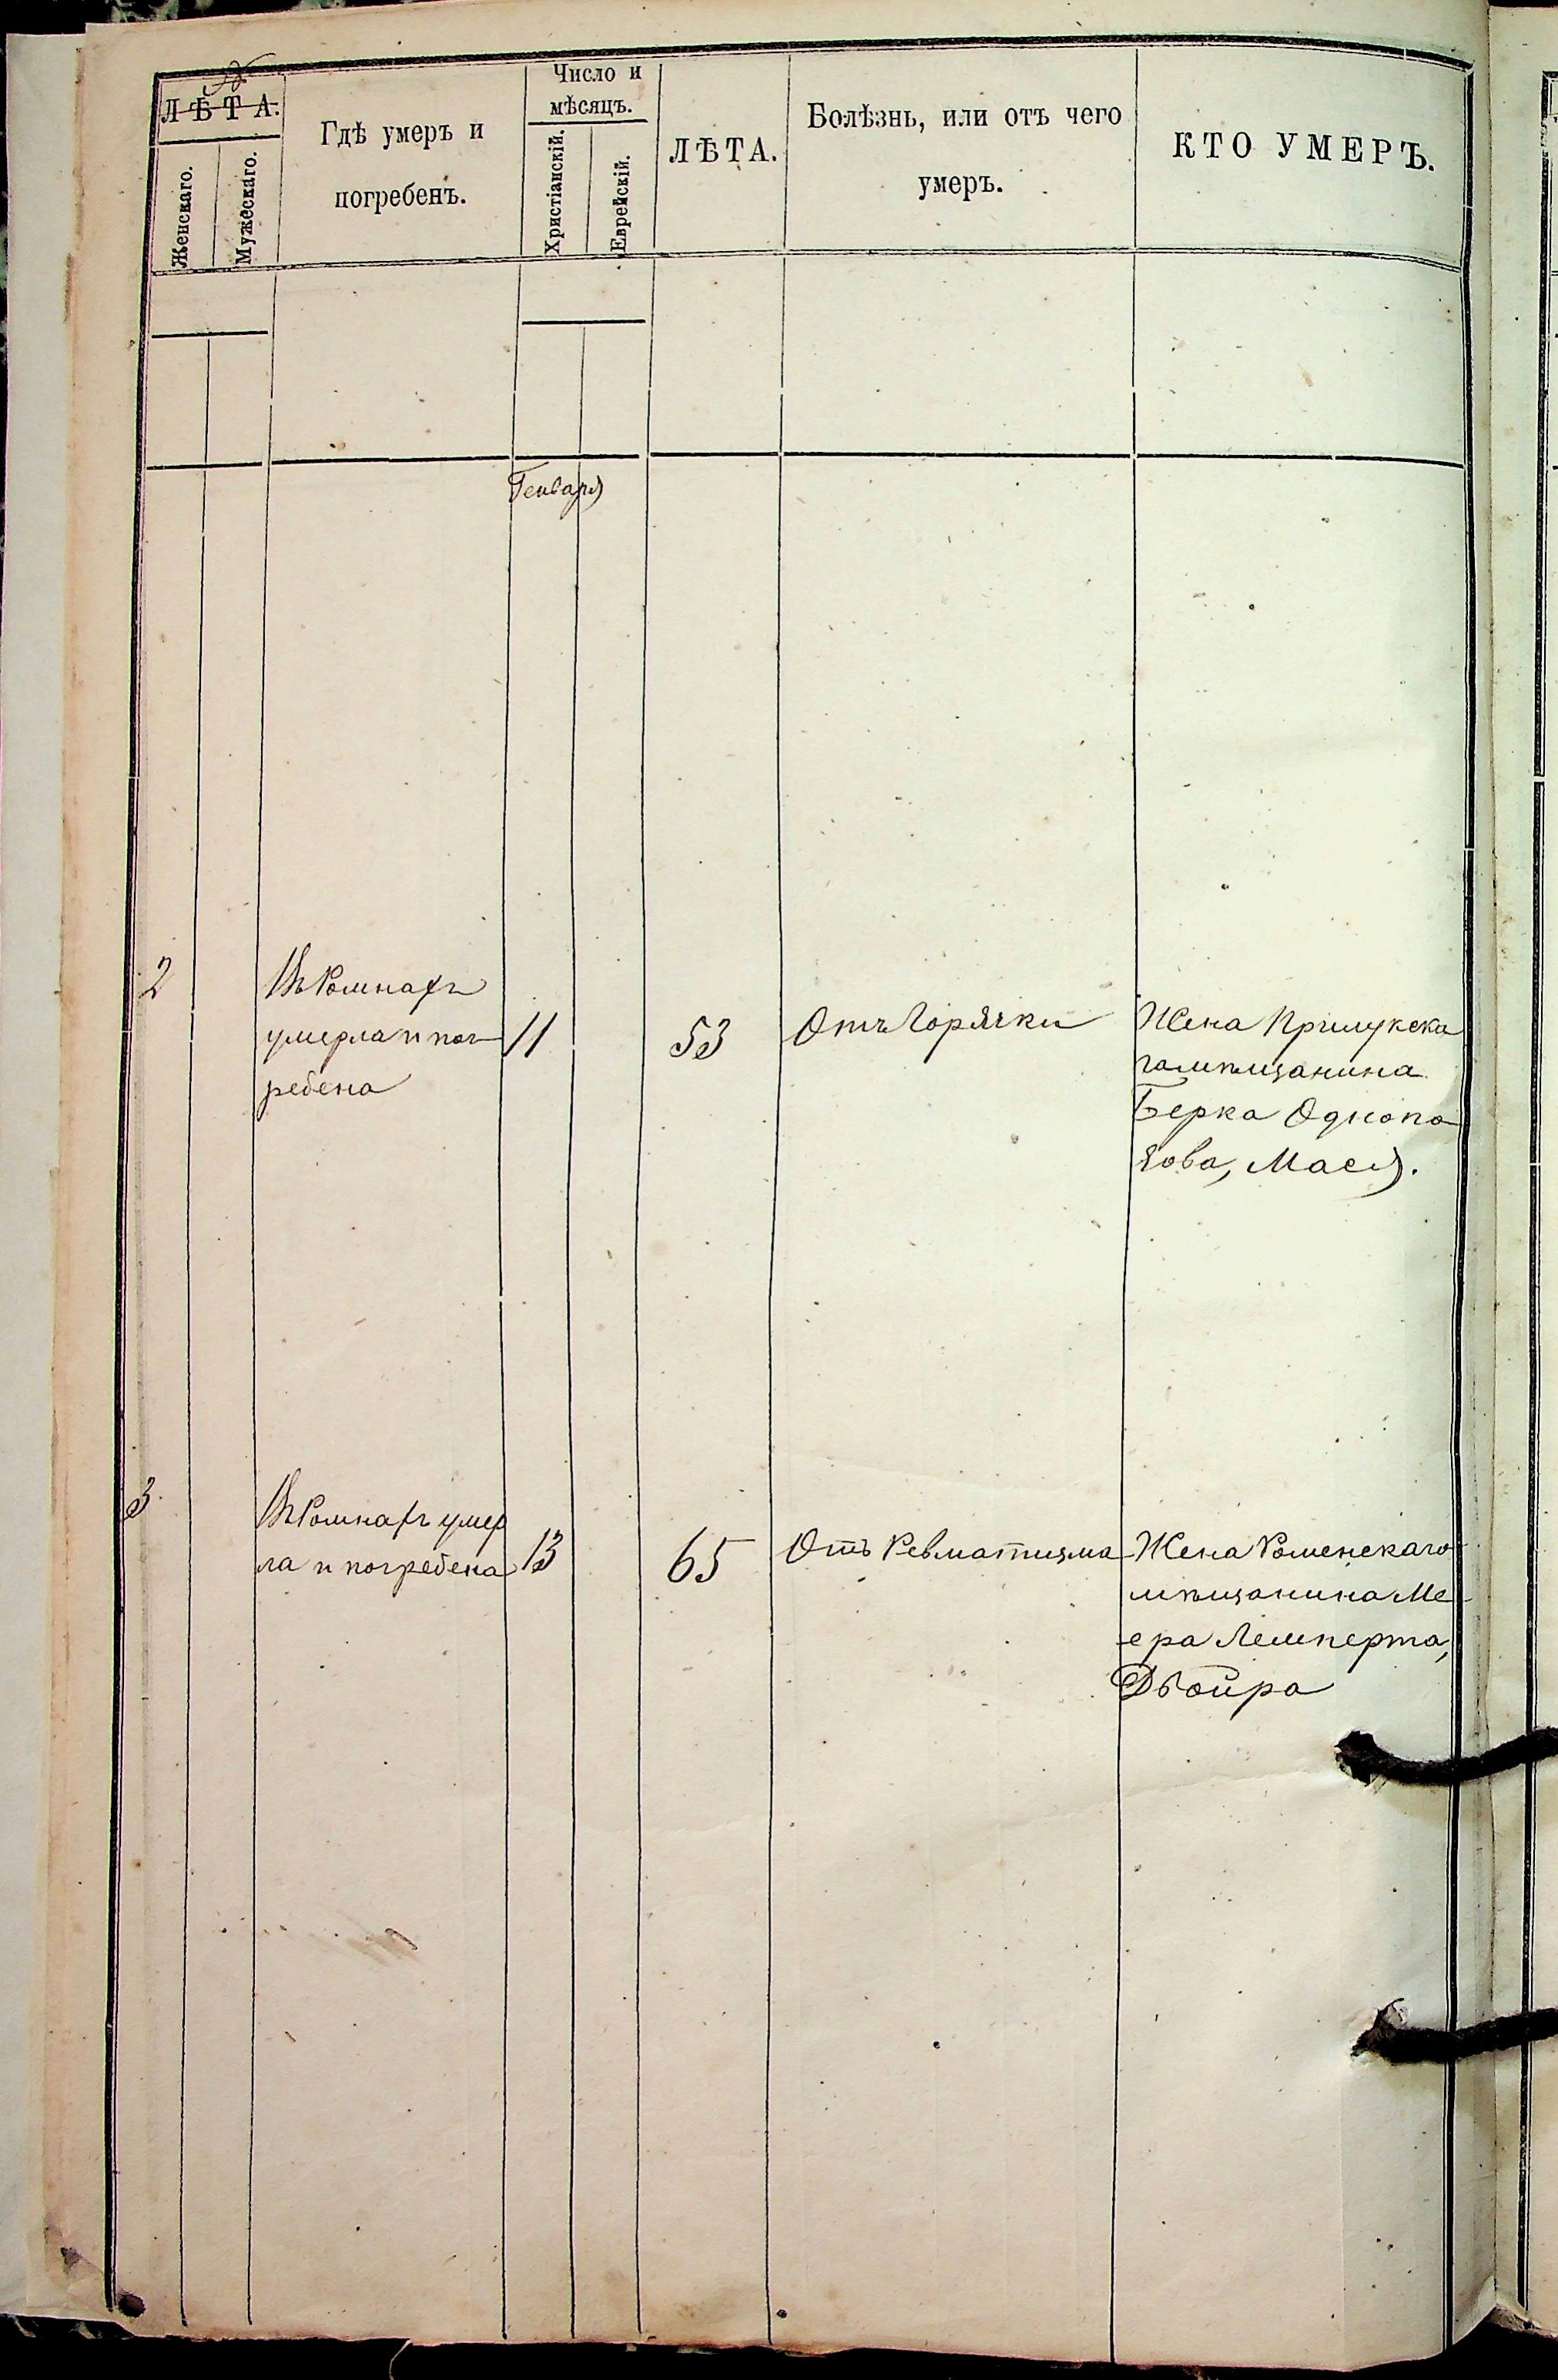 №
ЛѢТА.
Женскаго.
Мужескаго.
Гдѣ умеръ и
погребенъ.
Число и
мѣсяцъ.
Христіанскій.
Еврейскій.
ЛѢТА.
Болѣзнь, или отъ чего
умеръ.
КТО УМЕРЪ.
Генваря
2
Въ Ромнахъ
умерла и пог
ребена
11
53
Отъ Горячки
Жена Прилукска
го мѣщанина
Берка Однопо
зова, Мася.
3
Въ Ромнахъ умер
ла и погребена
13
65
Отъ Ревматизма
Жена Роменскаго
мѣщанина Ме
ера Лемперта,
Двойра